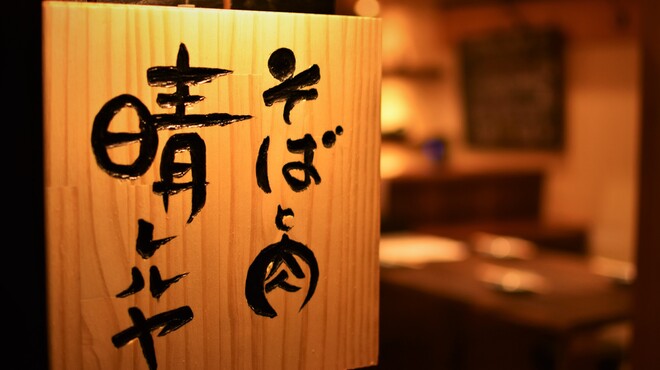 そばと肉
晴レルヤ